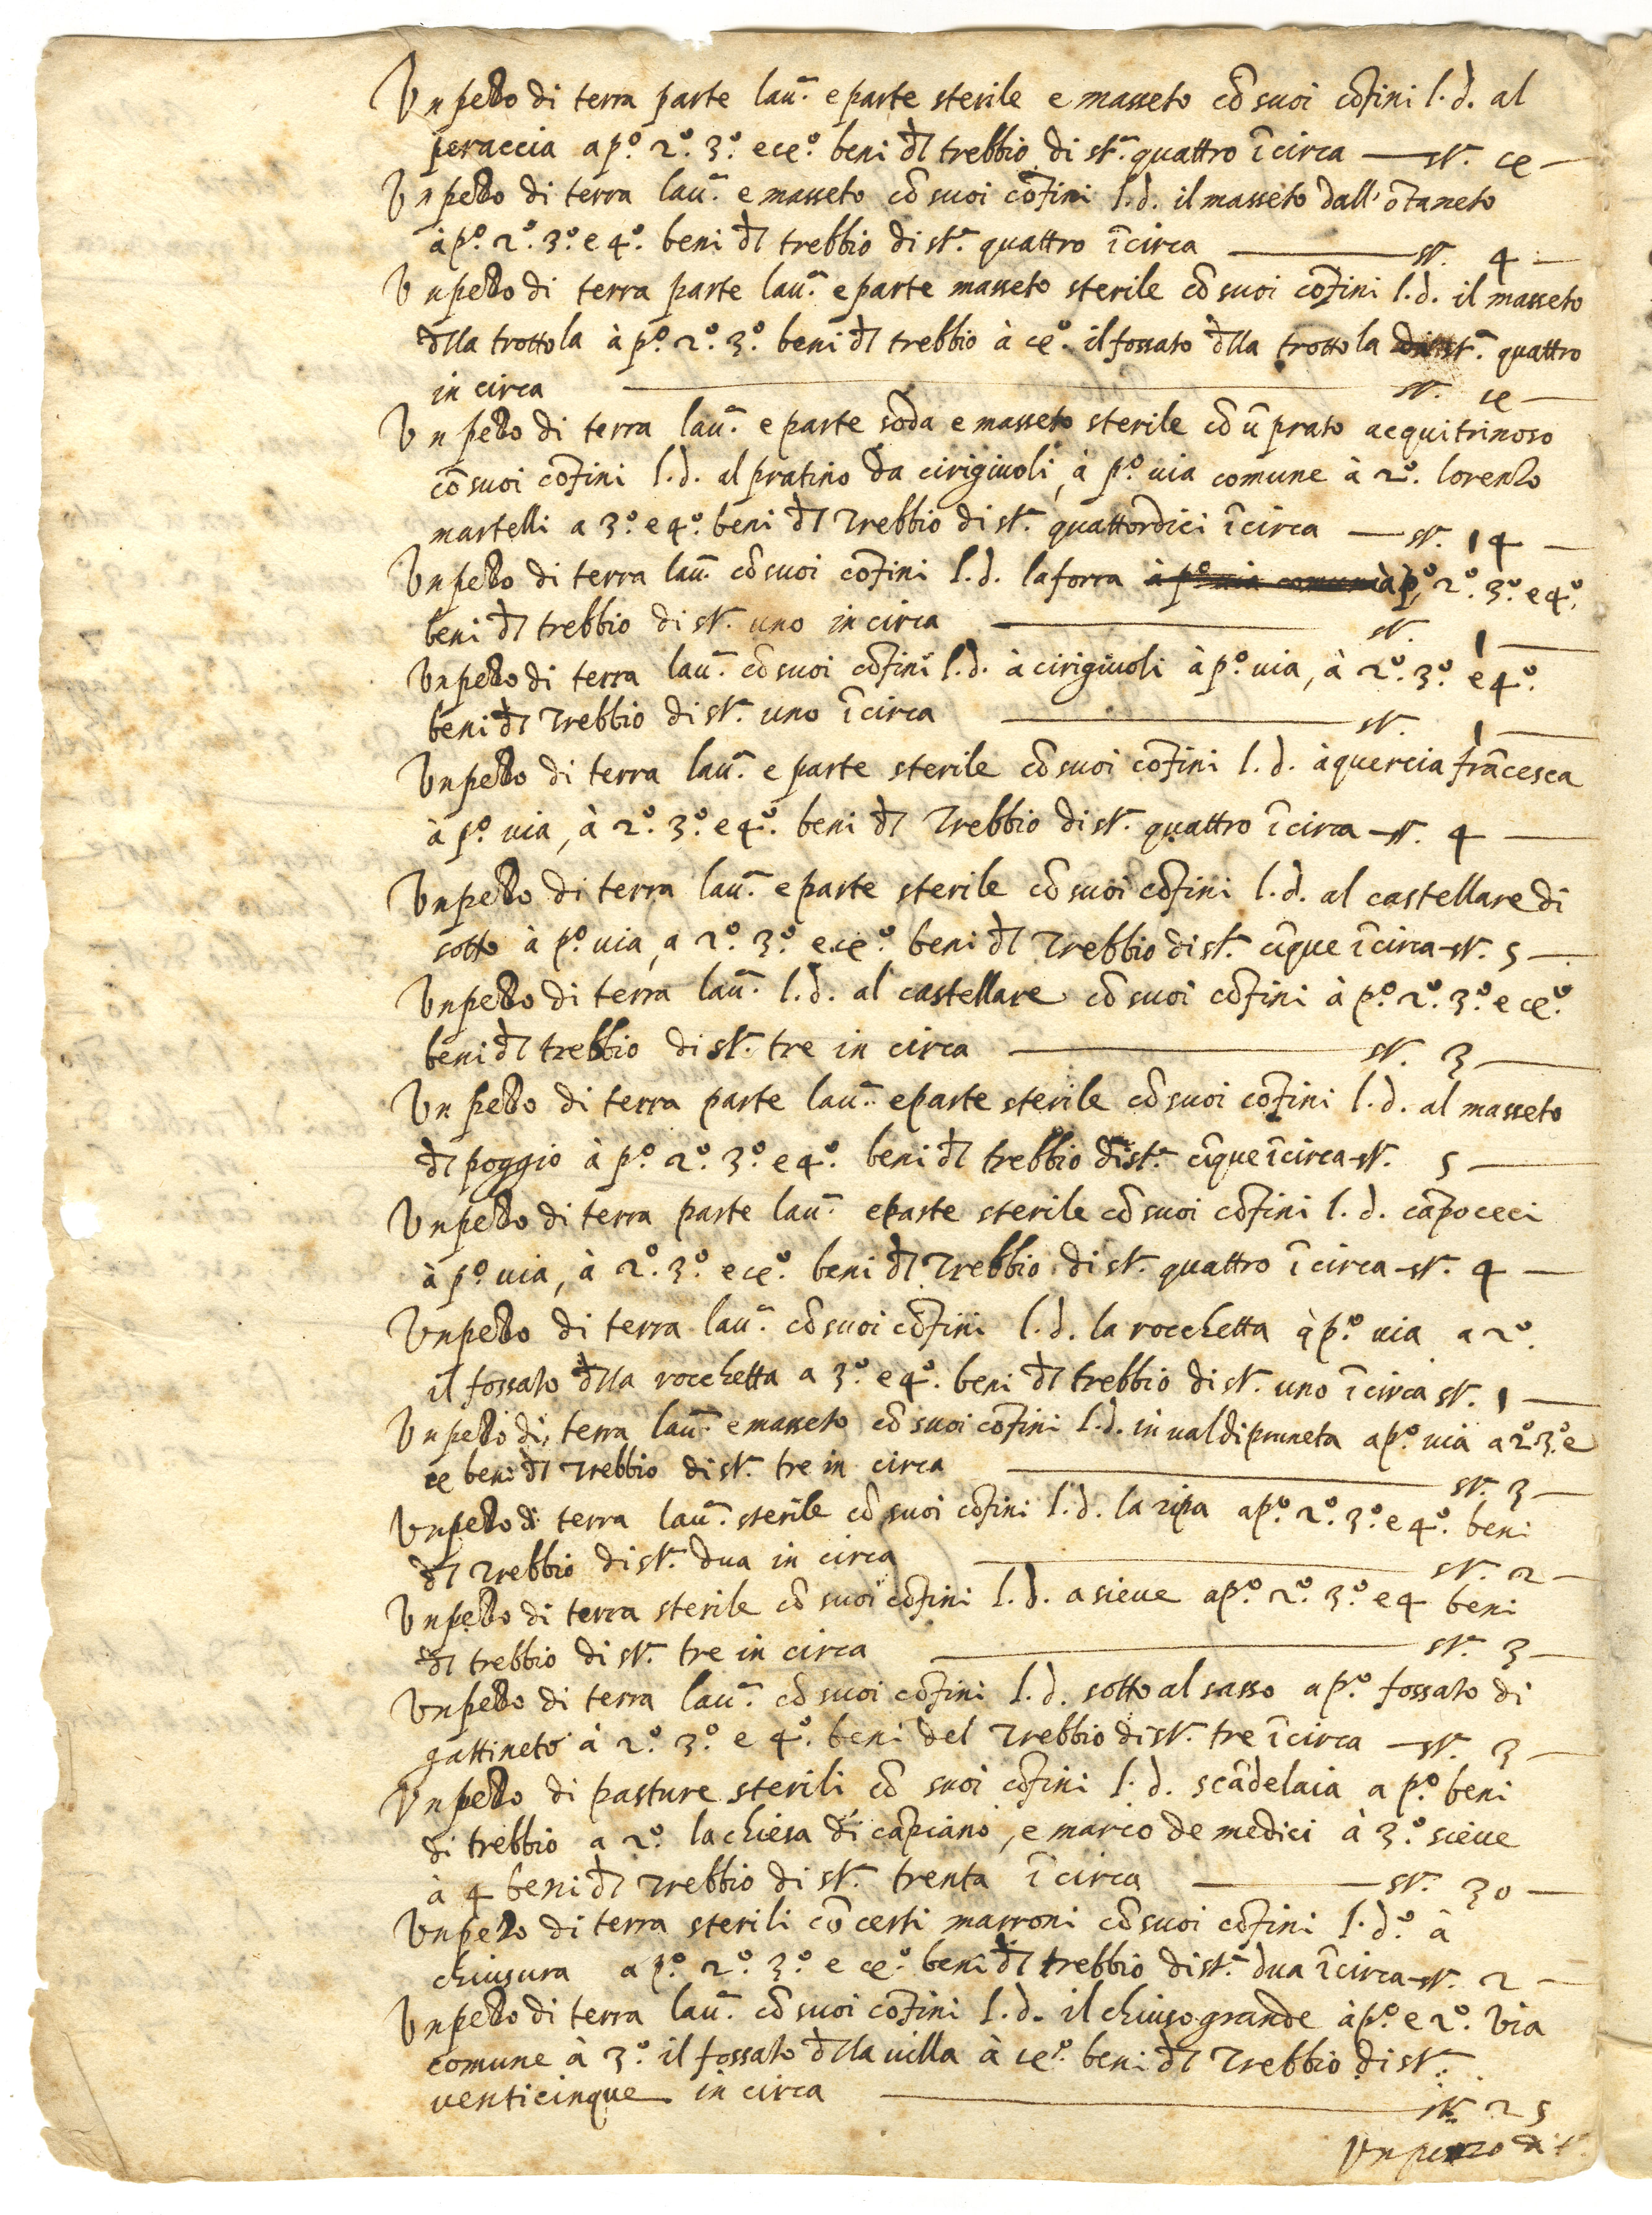 Un pezzo di terra parte lau.^a e parte sterile e masseto cō suoi cōfini l.d. al
peraccia a p.º 2.º 3.º e ce.º beni dl trebbio di st.ª quattro ī circa — st. ce —
Un pezzo di terra lau.^a e masseto cō suoi cōfini l.d. il masseto dall' ōtaneto
à p.º 2.º 3.º e 4.º beni dl trebbio di st.ª quattro ī circa — st. 4 —
Un pezzo di terra parte lau.^a e parte masseto sterile cō suoi cōfini l.d. il masseto
dlla trottola à p.º 2.º 3.º beni dl trebbio à ce.º il fossato dlla trottola st.ª quattro
in circa — st. ce —
Un pezzo di terra lau.^a e parte soda e masseto sterile cō ū prato acquitrinoso
cō suoi cōfini l.d. al pratino da cirigiuoli, à p.º uia comune à 2.º lorenzo
martelli a 3.º e 4.º beni dl Trebbio di st. quattordici ī circa — st. 14 —
Un pezzo di terra lau.^a cō suoi cōfini l.d. la forra à p.º uia comune à p.º 2.º 3.º e 4.º
beni dl trebbio di st. uno in circa — st. 1 —
Un pezzo di terra lau.^a cō suoi cōfini l.d. à cirigiuoli à p.º uia, à 2.º 3.º e 4.º
beni dl Trebbio di st. uno ī circa — st. 1 —
Un pezzo di terra lau.^a e parte sterile cō suoi cōfini l.d. à quercia frācesca
à p.º uia, à 2.º 3.º e 4.º beni dl Trebbio di st. quattro ī circa — st. 4 —
Un pezzo di terra lau.^a e parte sterile cō suoi cōfini l.d. al castellare di
sotto à p.º uia, a 2.º 3.º e ce.º beni dl Trebbio di st. cīque ī circa — st. 5 —
Un pezzo di terra lau.^a l.d. al castellare cō suoi cōfini à p.º 2.º 3.º e ce.º
beni dl trebbio di st. tre in circa — st. 3 —
Un pezzo di terra parte lau.^a e parte sterile cō suoi cōfini l.d. al masseto
dl poggio à p.º 2.º 3.º e 4.º beni dl trebbio di st.ª cīque ī circa — st. 5 —
Un pezzo di terra parte lau.^a e parte sterile cō suoi cōfini l.d. cāpoceci
à p.º uia, à 2.º 3.º e ce.º beni dl Trebbio di st. quattro ī circa — st. 4 —
Un pezzo di terra lau.^a cō suoi cōfini l.d. la rocchetta à p.º uia a 2.º
il fossato dlla rocchetta a 3.º e 4.º beni dl trebbio di st. uno ī circa st. 1 —
Un pezzo di terra lau.^a e masseto cō suoi cōfini l.d. in ualdipruneta a p.º uia a 2.º 3.º e
ce beni dl Trebbio di st. tre in circa — st. 3 —
Un pezzo di terra lau.^a sterile cō suoi cōfini l.d. la ripa a p.º 2.º 3.º e 4.º beni
dl Trebbio di st. dua in circa — st. 2 —
Un pezzo di terra sterile cō suoi cōfini l.d. a sieue a p.º 2.º 3.º e 4 beni
dl trebbio di st. tre in circa — st. 3 —
Un pezzo di terra lau.^a cō suoi cōfini l.d. sotto al sasso a p.º fossato di
gattineto à 2.º 3.º e 4.º beni del Trebbio di st. tre ī circa — st. 3 —
Un pezzo di pasture sterili cō suoi cōfini l.d. scādelaia a p.º beni
di trebbio a 2.º la chiesa di cāpiano, e marco de medici à 3.º sieue
à 4 beni dl Trebbio di st. trenta ī circa — st. 30 —
Un pezo di terra sterili cō certi marroni cō suoi cōfini l.d.º à
chiusura a p.º 2.º 3.º e ce.º beni dl trebbio di st.ª dua ī circa — st. 2 —
Un pezzo di terra lau.^a cō suoi cōfini l.d. il chiuso grande à p.º e 2.º Via
comune à 3.º il fossato dlla uilla à ce.º beni dl Trebbio di st.
venticinque in circa — st. 25
Un pezzo di t.